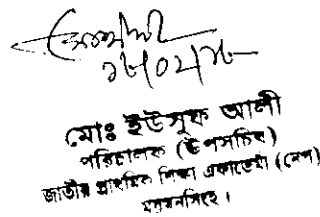 মোঃ ইউসুফ আলী
পরিচালক (উপসচিব)
জাতীয় প্রাথমিক শিক্ষা একাডেমী (নেপ)
ময়মনসিংহ ।